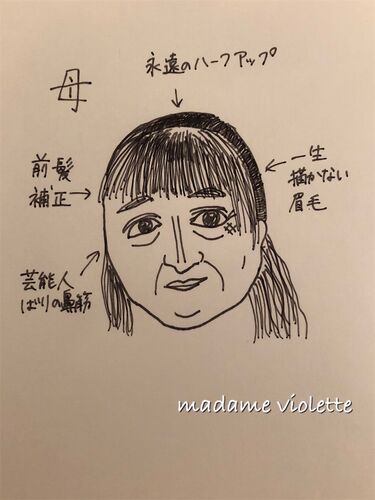 永遠のハーフアップ
母
前髪
補正
一生
描かない
眉毛
芸能人
ばりの鼻筋
madame violette